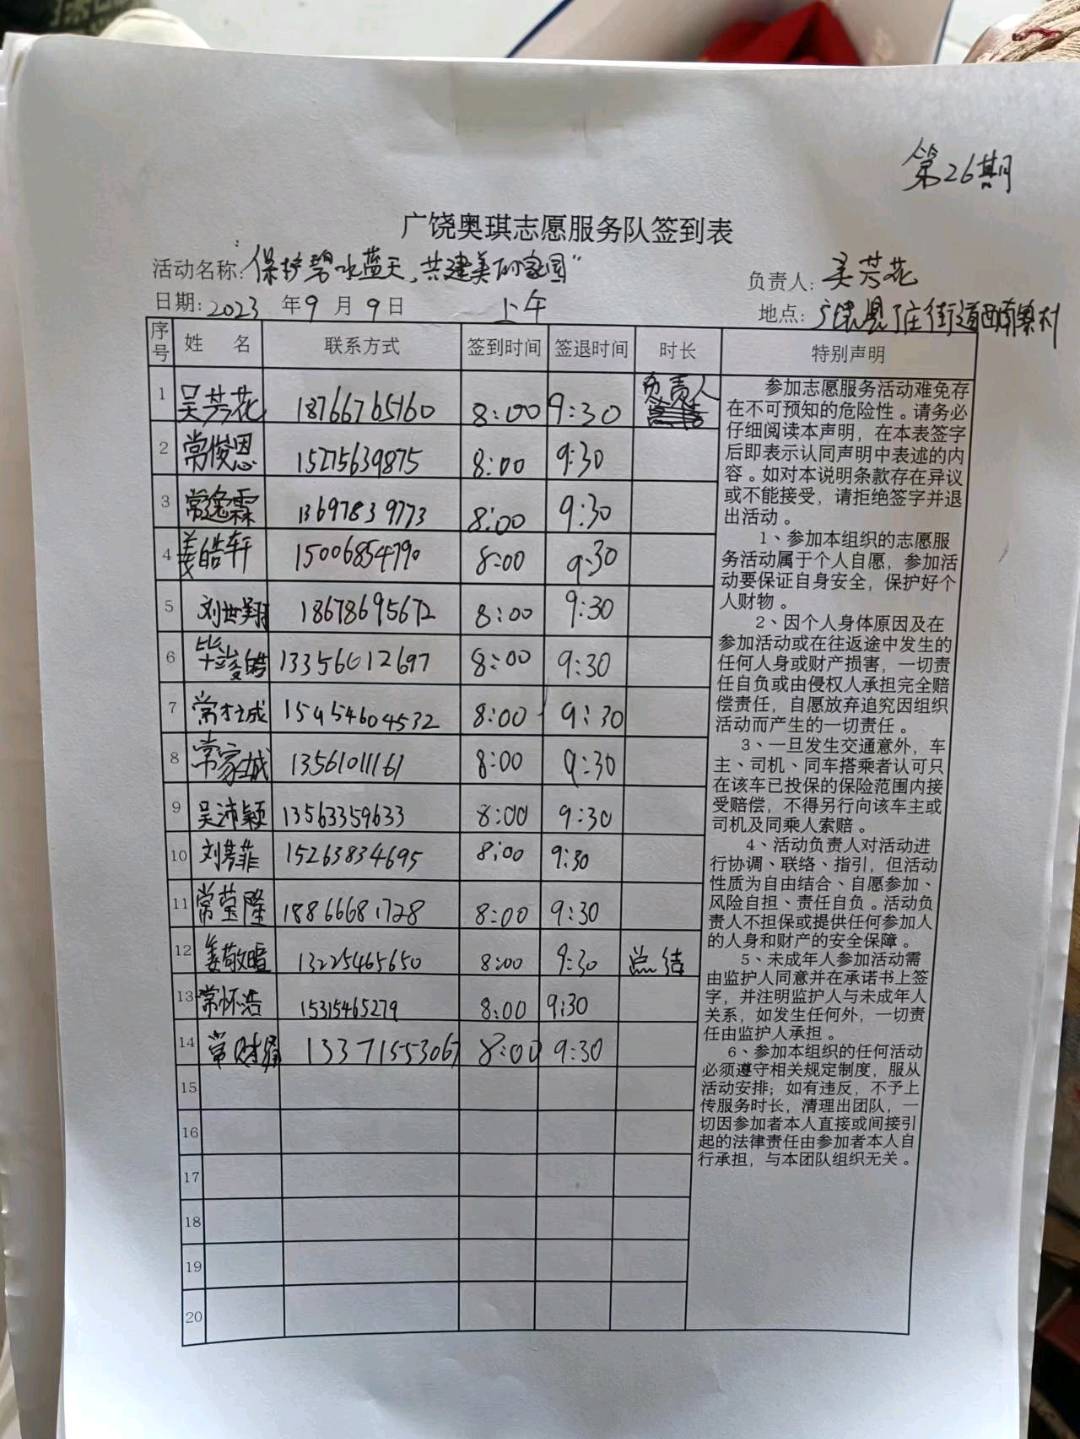 第26期
广饶奥琪志愿服务队签到表
活动名称:“保护碧水蓝天,共建美好家园”
负责人:吴芳花
日期:2023年9月9日 上午
地点:广饶县丁庄街道西南镇村
序号 姓名 联系方式 签到时间 签退时间 时长 特别声明
1 吴芳花 18766765160 8:00 9:30 负责人
2 常俊恩 15275639875 8:00 9:30
3 常逸霖 13697839773 8:00 9:30
4 姜皓轩 15006854790 8:00 9:30
5 刘世翔 18678695672 8:00 9:30
6 毕竣皓 13356012697 8:00 9:30
7 常 成 15954604532 8:00 9:30
8 常家城 13561011161 8:00 9:30
9 吴沛颖 13563359633 8:00 9:30
10 刘 菲 15263834695 8:00 9:30
11 常莹隆 18866681728 8:00 9:30
12 姜敬暄 13225465650 8:00 9:30 总结
13 常怀浩 15315465279 8:00 9:30
14 常 13371553067 8:00 9:30
15
16
17
18
19
20
参加志愿服务活动难免存
在不可预知的危险性。请务必
仔细阅读本声明，在本表签字
后即表示认同声明中表述的内
容。如对本说明条款存在异议
或不能接受，请拒绝签字并退
出活动。
1、参加本组织的志愿服
务活动属于个人自愿，参加活
动要保证自身安全，保护好个
人财物。
2、因个人身体原因及在
参加活动或在往返途中发生的
任何人身或财产损害，一切责
任自负或由侵权人承担完全赔
偿责任，自愿放弃追究因组织
活动而产生的一切责任。
3、一旦发生交通意外，车
主、司机、同车搭乘者认可只
在该车已投保的保险范围内接
受赔偿，不得另行向该车主或
司机及同乘人索赔。
4、活动负责人对活动进
行协调、联络、指引，但活动
性质为自由结合、自愿参加、
风险自担、责任自负。活动负
责人不担保或提供任何参加人
的人身和财产的安全保障。
5、未成年人参加活动需
由监护人同意并在承诺书上签
字，并注明监护人与未成年人
关系，如发生任何外，一切责
任由监护人承担。
6、参加本组织的任何活动
必须遵守相关规定制度，服从
活动安排；如有违反，不予上
传服务时长，清理出团队，一
切因参加者本人直接或间接引
起的法律责任由参加者本人自
行承担，与本团队组织无关。